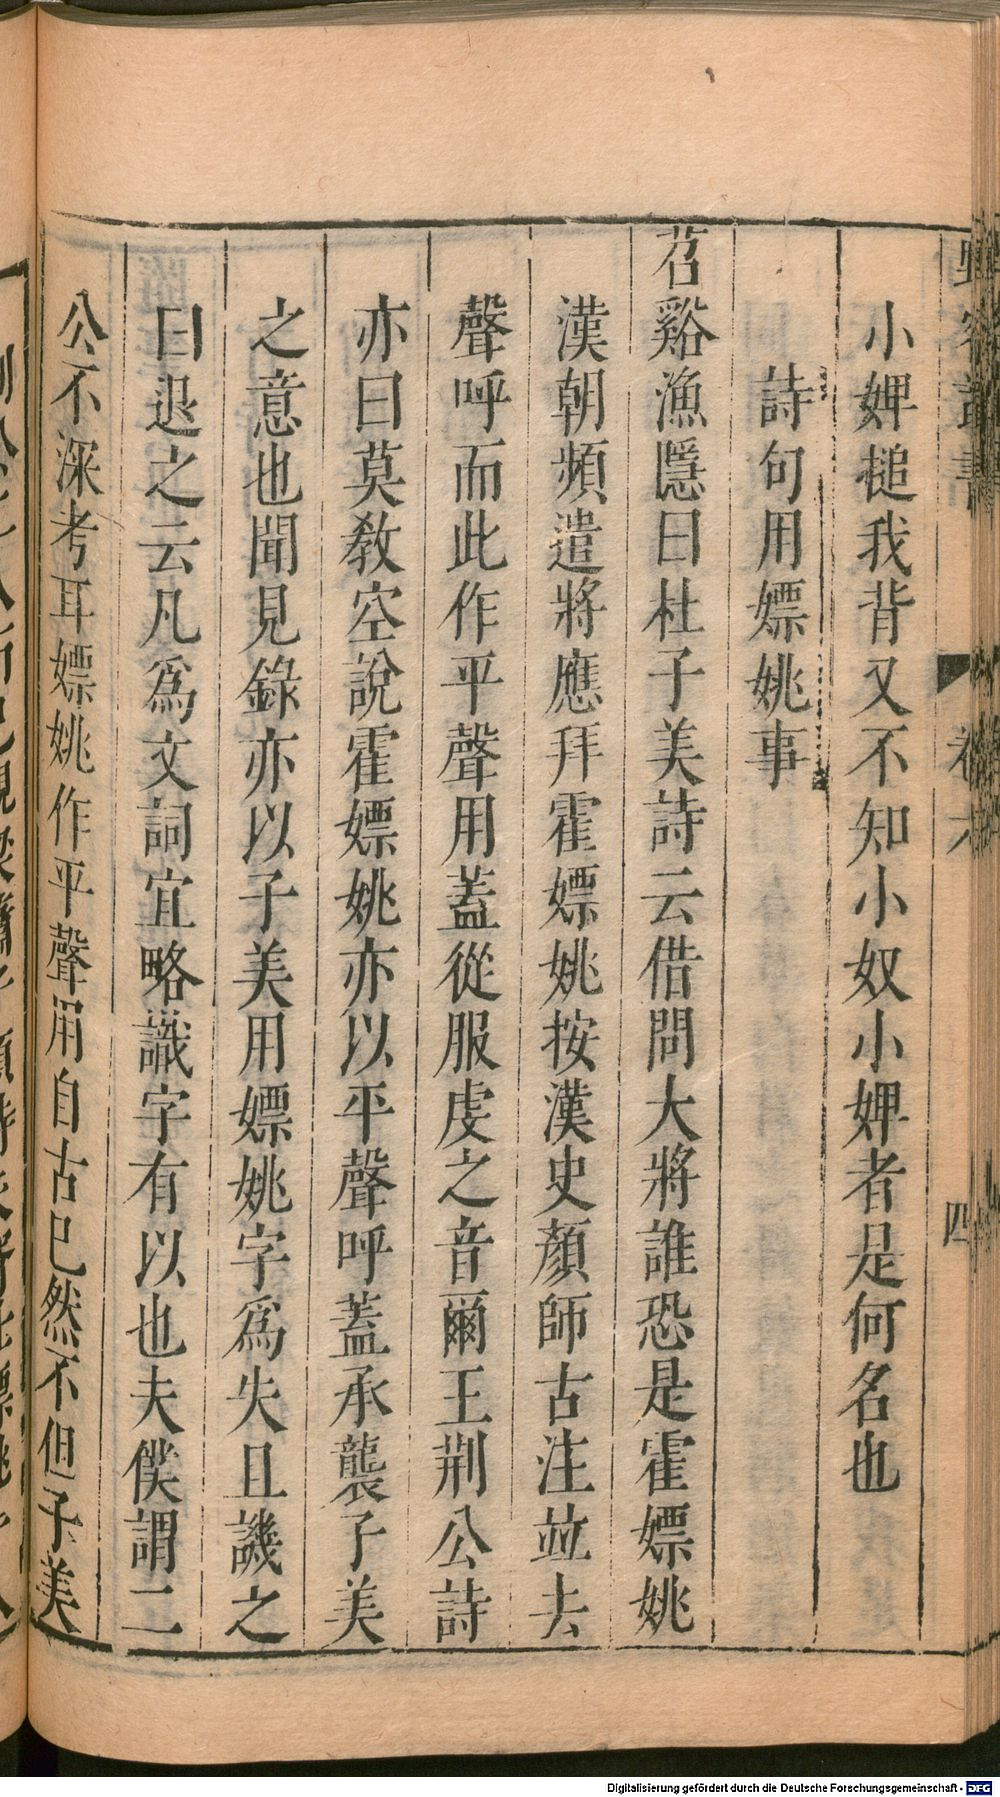 野客叢書 卷六 四
小婢搥我背又不知小奴小婢者是何名也
詩句用嫖姚事
苕谿漁隱曰杜子美詩云借問大將誰恐是霍嫖姚
漢朝頻遣將應拜霍嫖姚按漢史顏師古注竝去
聲呼而此作平聲用蓋從服虔之音爾王荆公詩
亦曰莫教空說霍嫖姚亦以平聲呼蓋承襲子美
之意也聞見錄亦以子美用嫖姚字爲失且譏之
曰退之云凡爲文詞宜略識字有以也夫僕謂二
公不深考耳嫖姚作平聲用自古已然不但子美
Digitalisierung gefördert durch die Deutsche Forschungsgemeinschaft - DFG